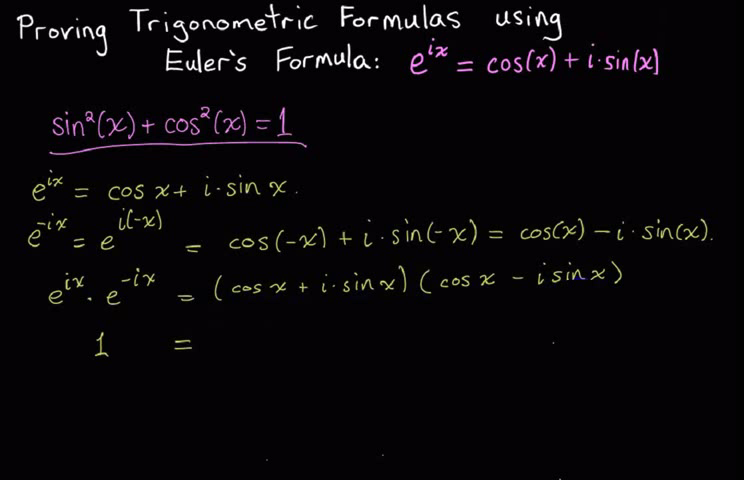 Proving Trigonometric Formulas using
Euler's Formula: e^{ix} = cos(x) + i·sin(x)
sin²(x) + cos²(x) = 1
e^{ix} = cos x + i·sin x.
e^{-ix} = e^{i(-x)} = cos(-x) + i·sin(-x) = cos(x) - i·sin(x).
e^{ix}·e^{-ix} = (cos x + i·sin x)(cos x - i sin x)
1 =